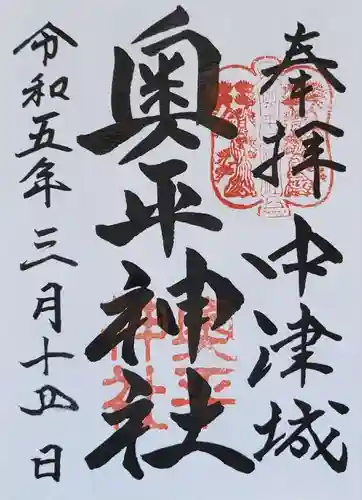 奉拝
中津城
奥平神社
令和五年三月十五日
奥平
神社